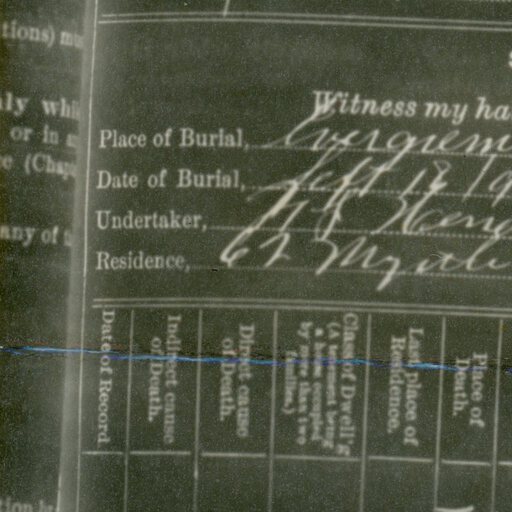 tions) mu
Witness my ha
Place of Burial, Evergreen
Date of Burial, Sept 18 19
Undertaker,
Residence, 62 Myrtle
or in
(Chap
any of
Date of Record
Indirect cause
of Death.
Direct cause
of Death.
Class of Dwell'g
(A tenement being
a house occupied
by more than two
families.)
Last place of
Residence.
Place of
Death.